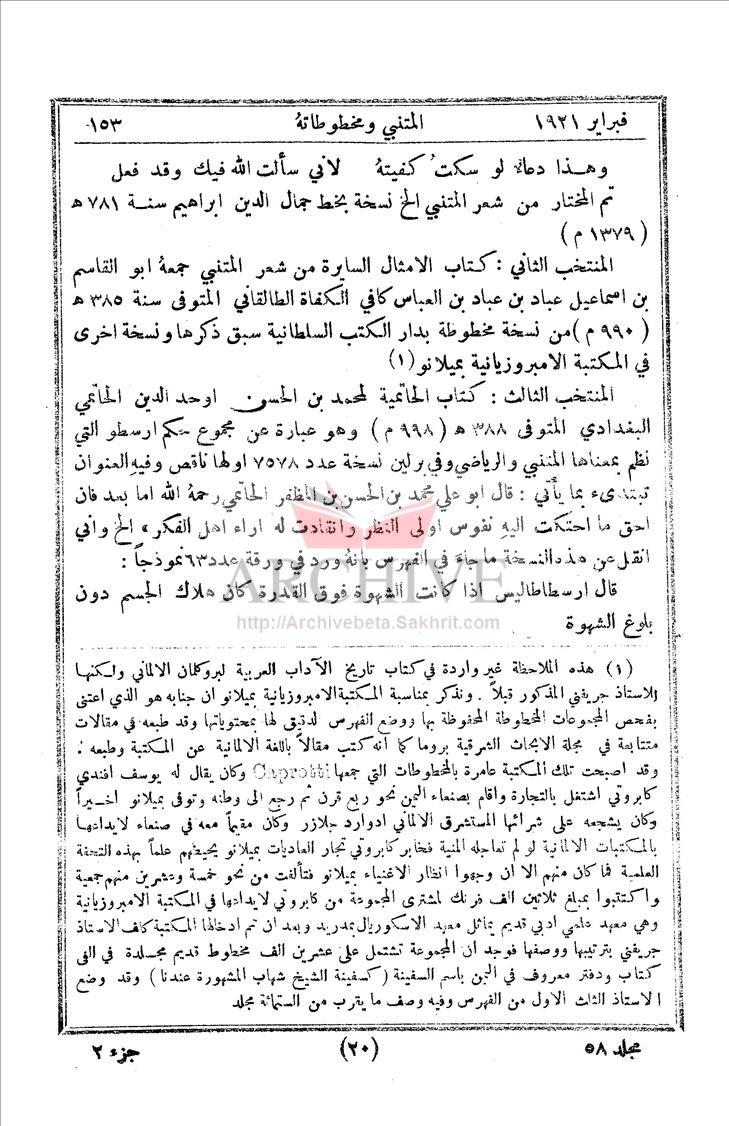 فبراير ١٩٢١ المتنبي ومخطوطاتهُ ١٥٣
وهـذا دعاءٌ لو سكتُ كفيتهُ لاني سألت الله فيك وقد فعل
تم المختار من شعر المتنبي الخ نسخة بخط جمال الدين ابراهيم سنـة ٧٨١ ه
(١٣٧٩ م)
المنتخب الثاني : كـتاب الامثال السايرة من شعر المتنبي جمعهُ ابو القاسم
بن اسماعيل عباد بن عباد بن العباس كافي الكفاة الطالقاني المتوفى سنة ٣٨٥ ه
(٩٩٠ م) من نسخة مخطوطة بدار الكتب السلطانية سبق ذكرها ونسخة اخرى
في المكتبة الامبروزيانية بميلانو (١)
المنتخب الثالث : كتاب الحاتمية لمحمد بن الحسن اوحد الدين الحاتمي
البغدادي المتوفى ٣٨٨ ه (٩٩٨ م) وهو عبارة عن مجموع حكم ارسطو التي
نظم بمعناها المتنبي والرياضي وفي برلين نسخة عدد ٧٥٧٨ اولها ناقص وفيهِ العنوان
تبتدىء بما يأتي : قال ابو علي محمد بن الحسن بن المظفر الحاتمي رحمهُ الله اما بعد فان
احق ما احتكت اليهِ نفوس اولى النظر وانقادت له اراء اهل الفكر » الخ واني
انقل عن هذه النسخة ما جاء في الفهرس بانهُ ورد في ورقة عدد ٦٣ نموذجاً :
ARCHIVE
قال ارسطاطاليس اذا كانت الشهوة فوق القدرة كان هلاك الجسم دون
بلوغ الشهوة
http://Archivebeta.Sakhrit.com
(١) هذه الملاحظة غير واردة في كتاب تاريخ الآداب العربية لبروكلمان الالماني ولكنها
للاستاذ جريفني المذكور قبلاً . ونذكر بمناسبة المكتبة الامبروزيانية بميلانو ان جنابه هو الذي اعتنى
بفحص المجموعات المخطوطة المحفوظة بها ووضع الفهرس لدقيق لها بمحتوياتها وقد طبعه في مقالات
متتابعة في مجلة الابحاث الشرقية بروما كما أنه كتب مقالاً باللغة الالمانية عن المكتبة وطبعه .
وقد اصبحت تلك المكتبة عامرة بالمخطوطات التي جمعها Caprotti وكان يقال له يوسف افندي
كابروتي اشتغل بالتجارة واقام بصنعاء اليمن نحو ربع قرن ثم رجع الى وطنه وتوفى بميلانو اخـيراً
وكان يشجعه على شرائها المستشرق الالماني ادوارد جلازر وكان مقيماً معه في صنعاء لايداعها
بالمكتبات الالمانية لو لم تعاجله المنية فخابر كابروتي تجار العاديات بميلانو يحيطهم علماً بهذه التحفة
العلمية فما كان منهم الا ان وجهوا انظار الاغنياء بميلانو فتألفت من نحو خمسة وعشرين منهم جمعية
واكتتبوا بمبلغ ثلاثين الف فرنك لمشترى المجموعة من كابروتي لايداعها في المكتبة الامبروزيانية
وهي معهد علمي ادبي قديم يماثل معهد الاسكوريال بمدريد وبعد ان تم ادخالها المكتبة كلف الاستاذ
جريفني بترتيبها ووصفها فوجد ان المجموعة تشتمل على عشرين الف مخطوط قديم مجـلدة في الفى
كـتاب ودفتر معروف في اليمن باسم السفينة (كسفينة الشيخ شهاب المشهورة عندنا) وقد وضع
الاستاذ الثلث الاول من الفهرس وفيه وصف ما يقرب من الستمائة مجلد
مجلد ٥٨ (٢٠) جزء ٢